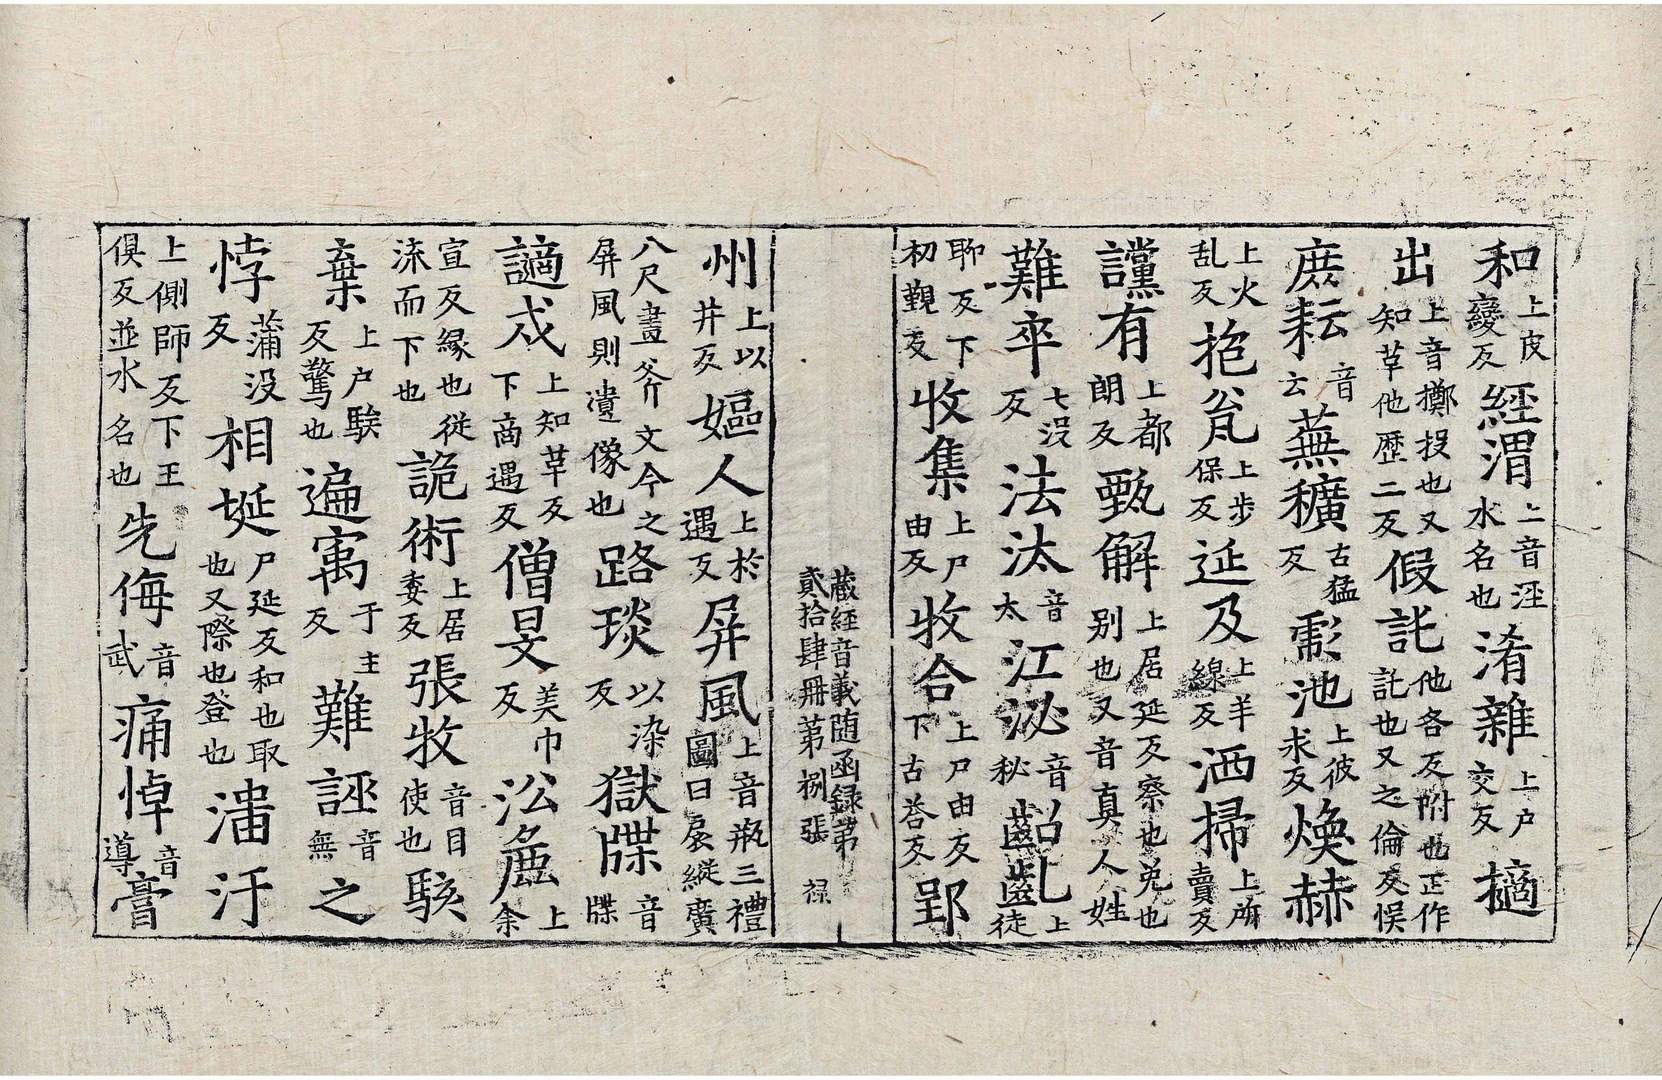 和上皮變反經渭二音涇水名也淆雜上户交反擿
出上音擲投也又知革他歷二反假託他各反附也正作託也又之倫反悮
庻耘音云蕪穬古猛反䨥池上彼求反煥赫
上火乱反抱瓮上步保反延及上羊線反洒掃上所賣反
讜有上都朗反甄解上居延反察也免也别也又音真人姓
難卒七没反法汰音太江泌音秘齠齔上徒
聊反下初覲反收集上尸由反收合上尸由反下古荅反郢
藏經音義随函録第貳拾肆冊第捌張 禄
州上以井反嫗人上於遇反屏風上音瓶三禮圖曰扆縱廣
八尺畫斧文今之屏風則遺像也路琰以染反獄牒音牒
讁戍上知革反下商遇反僧旻美巾反㳂麁上余
宣反縁也從㳂而下也詭術上居委反張牧音目使也駭
棄上户騃反驚也遍寓于主反難誣音無之
悖蒲没反相埏尸延反和也取也又際也登也潘汙
上側師反下王俱反並水名也先侮音武痛悼音導膏